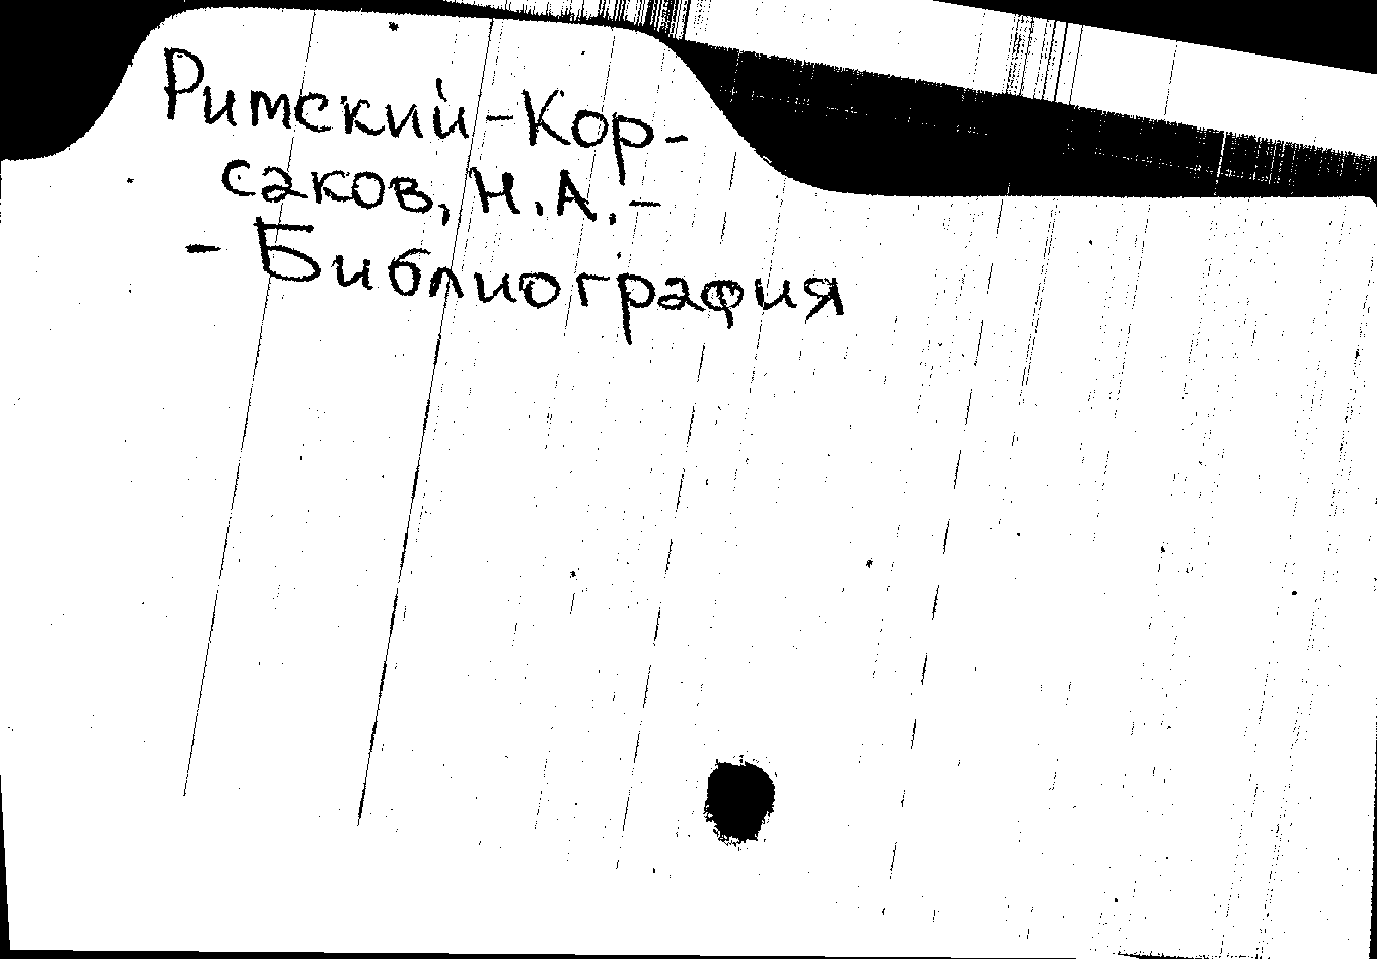 Римский-Кор-
саков, Н.А.-
- Библиография